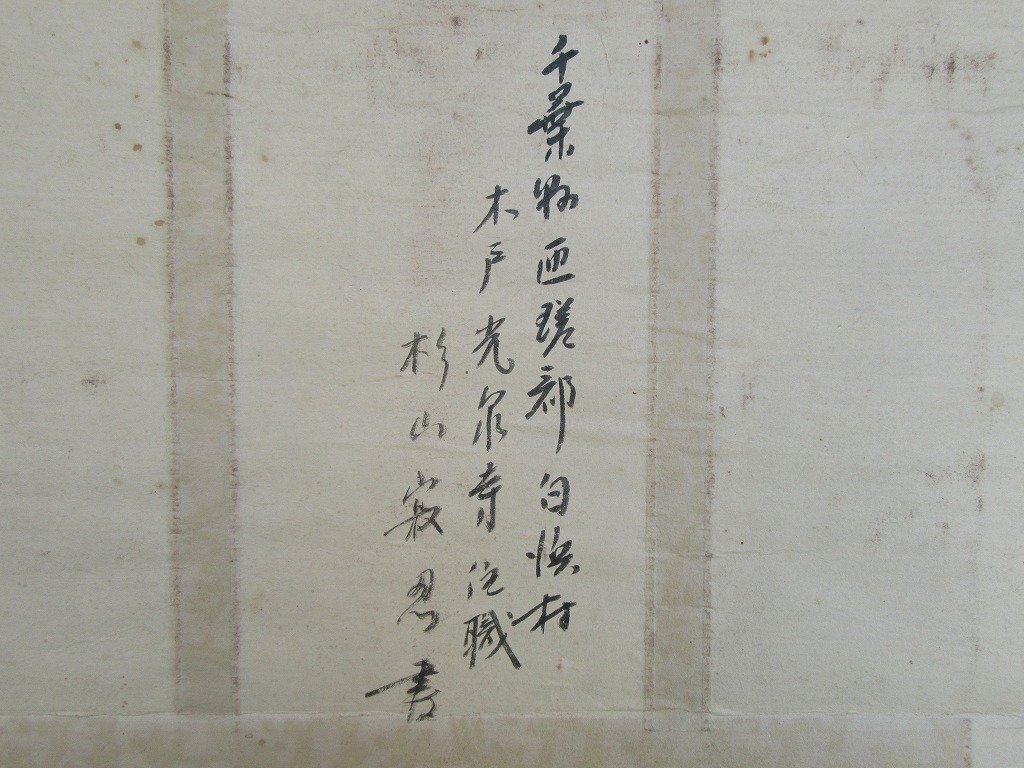 千葉縣匝瑳郡白濱村
木戸光泉寺住職
杉山寂忍書